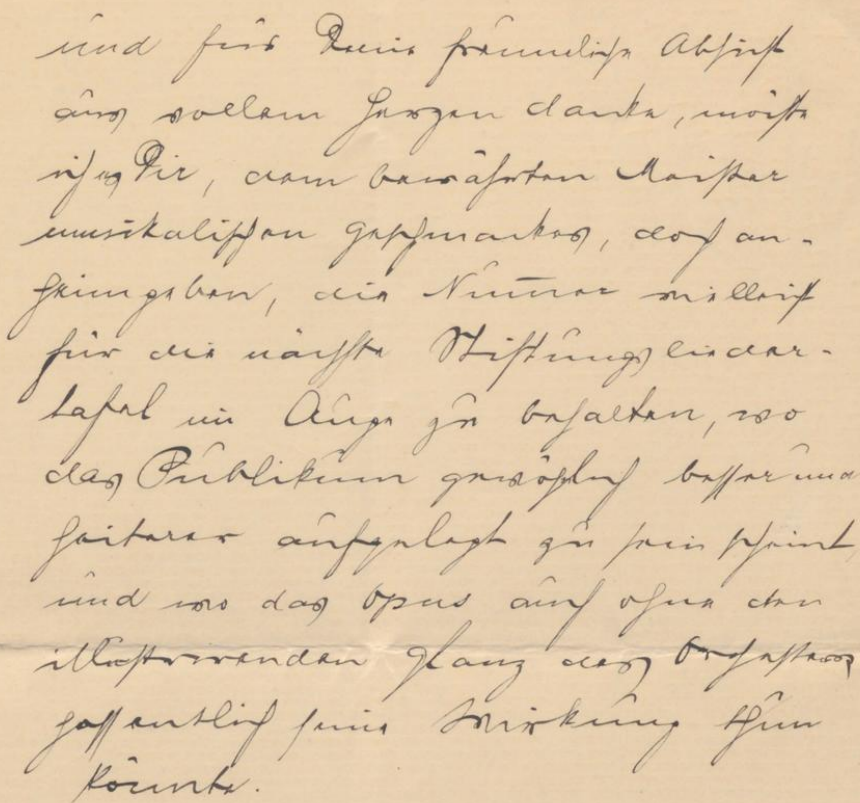 und für Deine freundliche Absicht
aus vollem Herzen danke, möchte
ich es Dir, dem bewährten Meister
musikalischen Geschmackes, doch an-
heimgeben, die Nummer vielleicht
für die nächste Stiftungslieder-
tafel im Auge zu behalten, wo
das Publikum gewöhnlich besser und
heiterer aufgelegt zu sein scheint
und wo das Opus auch ohne den
illustrirenden Glanz des Orchesters
hoffentlich seine Wirkung thun
könnte.